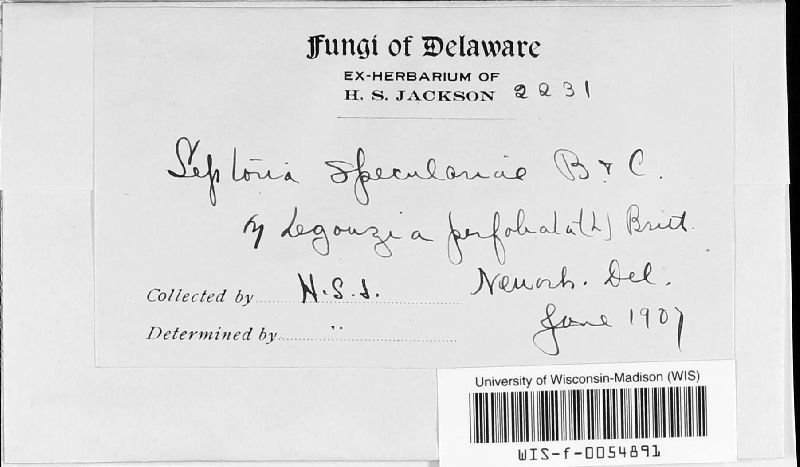 Fungi of Delaware
EX-HERBARIUM OF
H. S. JACKSON 2231
Septoria speculariae B & C.
on Legouzia perfoliata (L) Britt.
Collected by H.S.J. Newark. Del.
Determined by " June 1907
University of Wisconsin-Madison (WIS)
WIS-f-0054891